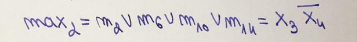 max₂ = m₂ ∨ m₆ ∨ m₁₀ ∨ m₁₄ = x₃ x̅₄